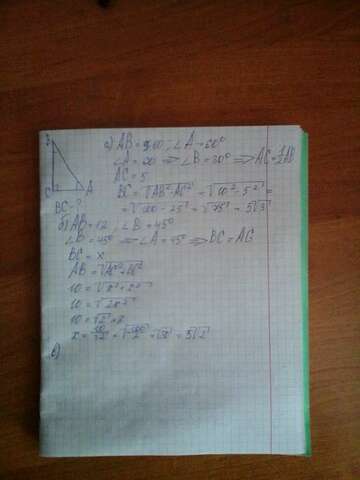 а) AB = 10, ∠A = 60°
∠A = 60 ⇒ ∠B = 30° ⇒ AC = 1/2 AB
AC = 5
BC = √AB² - AC² = √10² - 5² =
= √100 - 25 = √75 = 5√3
B
C
A
BC - ?
б) AB = 12, ∠B = 45°
∠B = 45° ⇒ ∠A = 45° ⇒ BC = AC
BC = x
AB = √AC² + BC²
10 = √x² + x²
10 = √2x²
10 = √2 · x
x = 10/√2 = √100/2 = √50 = 5√2